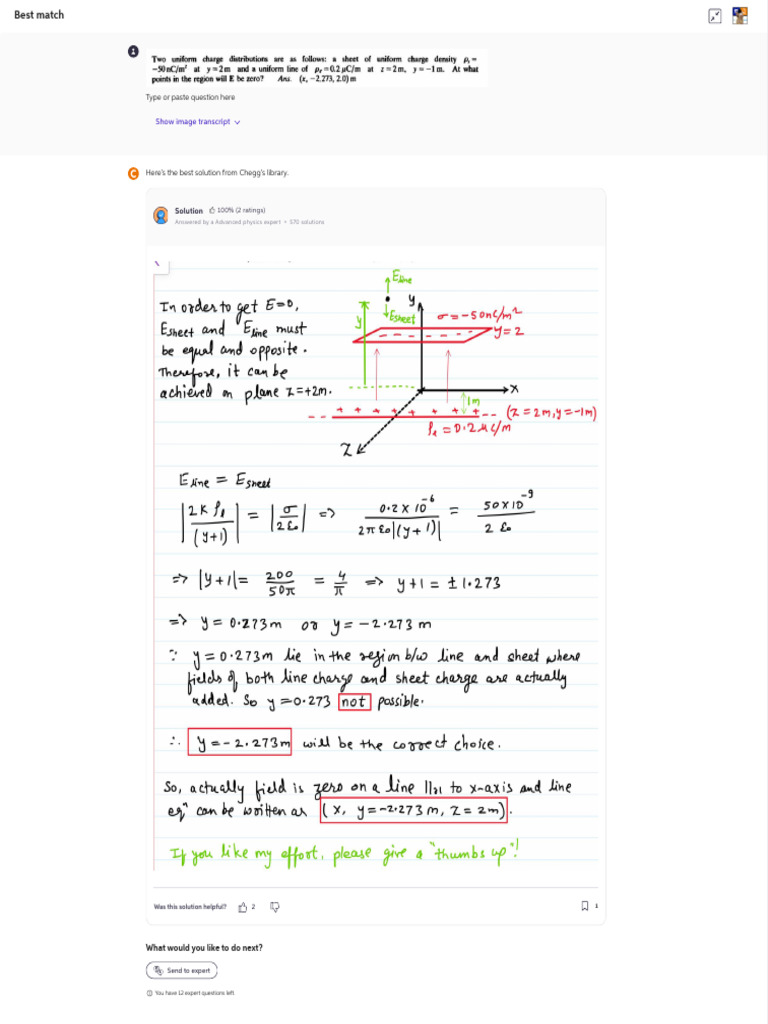 Best match
1
Two uniform charge distributions are as follows: a sheet of uniform charge density ρs =
−50 nC/m² at y = 2 m and a uniform line of ρℓ = 0.2 μC/m at z = 2 m, y = −1 m. At what
points in the region will E be zero? Ans. (x, −2.273, 2.0) m
Type or paste question here
Show image transcript
C Here's the best solution from Chegg's library.
Solution 100% (2 ratings)
Answered by a Advanced physics expert • 570 solutions
In order to get E=0,
Esheet and Eline must
be equal and opposite.
Therefore, it can be
achieved on plane z=+2m.
Eline
Esheet
y
y
σ=−50nc/m²
y=2
x
1m
+ + + + + + + +
(z=2m,y=−1m)
ρℓ=0.2μc/m
z
Eline = Esheet
|2K ρℓ/(y+1)| = |σ/2ε₀| => 0.2×10⁻⁶/2πε₀|(y+1)| = 50×10⁻⁹/2ε₀
=> |y+1| = 200/50π = 4/π => y+1 = ±1.273
=> y=0.273m or y=−2.273 m
∵ y=0.273m lie in the region b/w line and sheet where
fields of both line charge and sheet charge are actually
added. So y=0.273 not possible.
∴ y=−2.273m will be the correct choice.
So, actually field is zero on a line ||el to x-axis and line
eqⁿ can be written as (x, y=−2.273m, z=2m).
If you like my effort, please give a "thumbs up"!
Was this solution helpful? 2
1
What would you like to do next?
Send to expert
You have 12 expert questions left